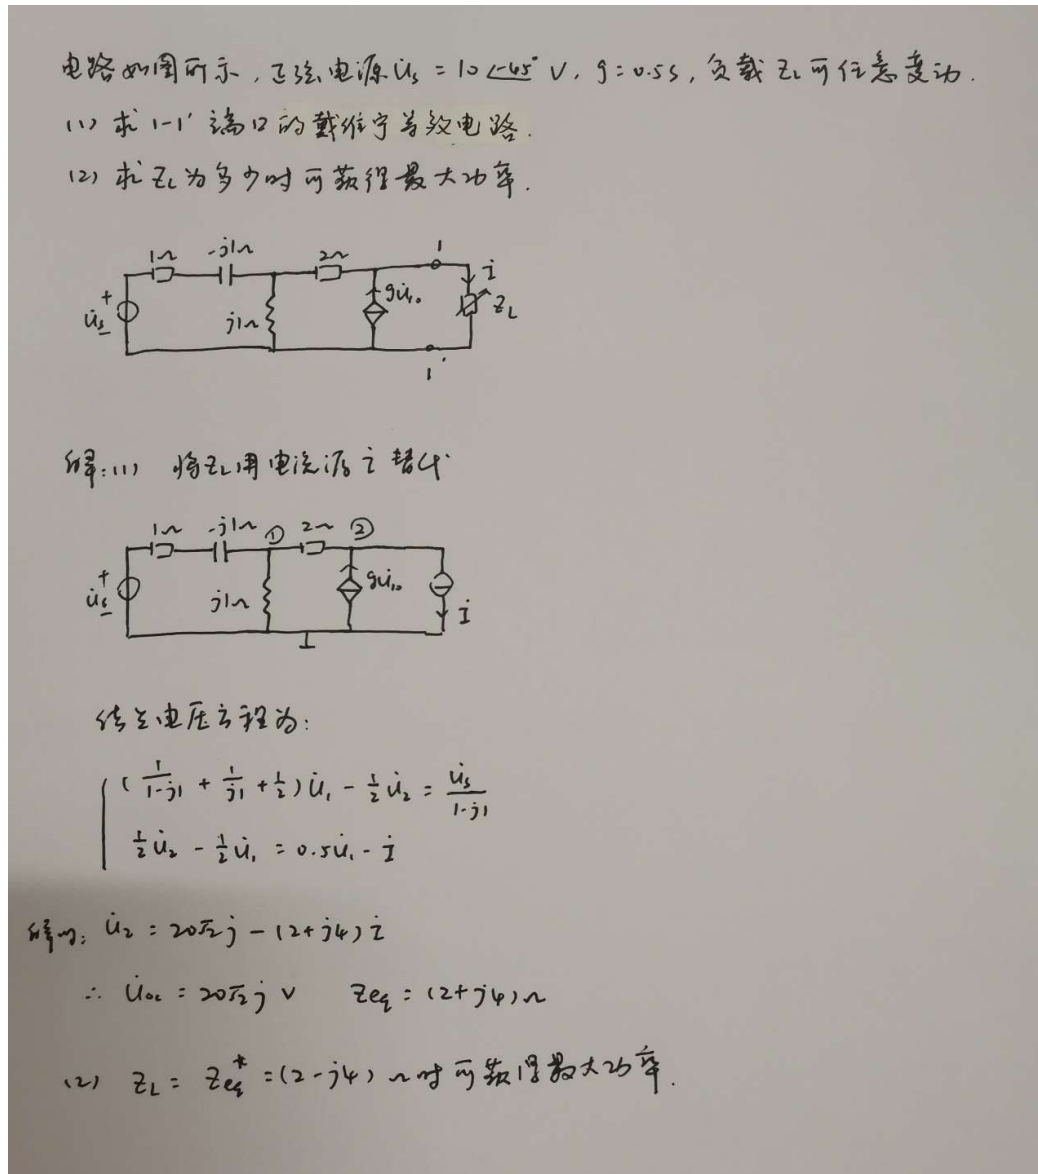 电路如图所示,正弦电源U̇s = 10∠-45° V, g=0.5s, 负载 ZL可任意变动.
(1) 求 1-1' 端口的戴维宁等效电路.
(2) 求 ZL为多少时可获得最大功率.
1Ω -j1Ω 2Ω 1
+ U̇s - j1Ω gU̇10 İ ZL
1'
解:(1) 将ZL用电流源 İ 替代
1Ω -j1Ω ① 2Ω ②
+ U̇s - j1Ω gU̇10 İ
结点电压方程为:
( 1/(1-j1) + 1/j1 + 1/2 ) U̇1 - 1/2 U̇2 = U̇s/(1-j1)
1/2 U̇2 - 1/2 U̇1 = 0.5U̇1 - İ
解得: U̇2 = 20√2 j - (2+j4) İ
∴ U̇oc = 20√2 j V Zeq = (2+j4) Ω
(2) ZL = Zeq* = (2-j4) Ω 时可获得最大功率.